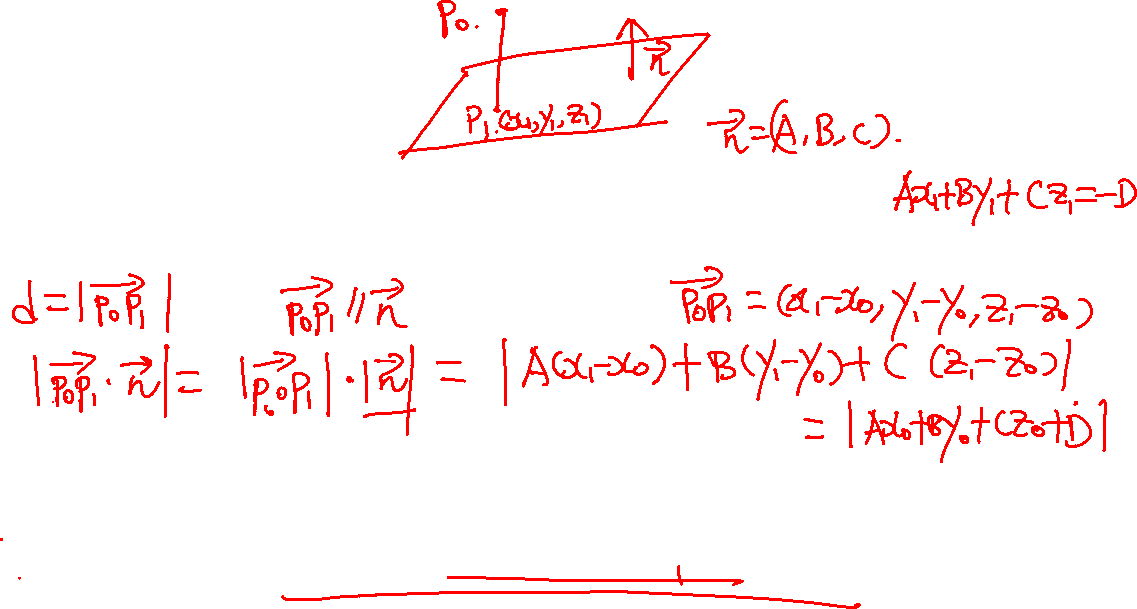 P₀.
n⃗
P₁(x₁,y₁,z₁)
n⃗=(A,B,C).
Ax₁+By₁+Cz₁=-D
d=|P₀P₁⃗| P₀P₁⃗ // n⃗ P₀P₁⃗ = (x₁-x₀, y₁-y₀, z₁-z₀)
|P₀P₁⃗ · n⃗| = |P₀P₁⃗| · |n⃗| = |A(x₁-x₀)+B(y₁-y₀)+C(z₁-z₀)|
= |Ax₀+By₀+Cz₀+D|